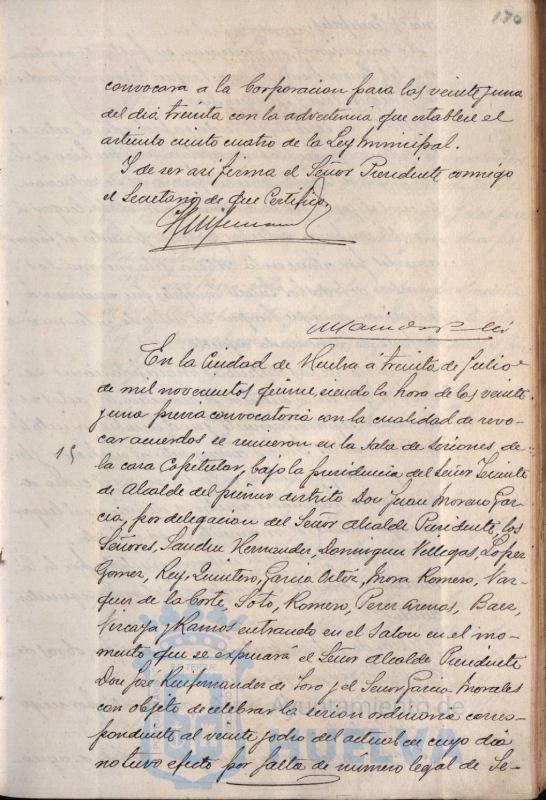 170
convocara a la Corporacion para las veinte y una
del dia treinta con la advertencia que establece el
articulo ciento cuatro de la Ley Municipal.
Y de ser asi firma el Señor Presidente conmigo
el Secretario, de que Certifico.
En la Ciudad de Huelva á treinta de Julio
de mil novecientos quince, siendo la hora de las veinte
y una previa convocatoria con la cualidad de revo-
car acuerdos se reunieron en la Sala de sesiones de
15
la casa Capitular, bajo la presidencia del Señor Teniente
de Alcalde del primer distrito Don Juan Moreno Gar-
cia, por delegacion del Señor Alcalde Presidente, los
Señores, Sanchez Hernandez, Dominguez Villegas, Lopez
Gomez, Rey, Quintero, Garcia Ortiz, Mora Romero, Vaz-
quez de la Corte, Soto, Romero, Perez Arenas, Baez,
Vizcaya y Ramos entrando en el Salon en el mo-
mento que se expresará el Señor Alcalde Presidente
Don José Ruifernandez de Toro y el Señor Garcia Morales
con objeto de celebrar la sesion ordinaria corres-
pondiente al veinte y ocho del actual en cuyo dia
no tuvo efecto por falta de numero legal de Se-
Ayuntamiento de
HUELVA